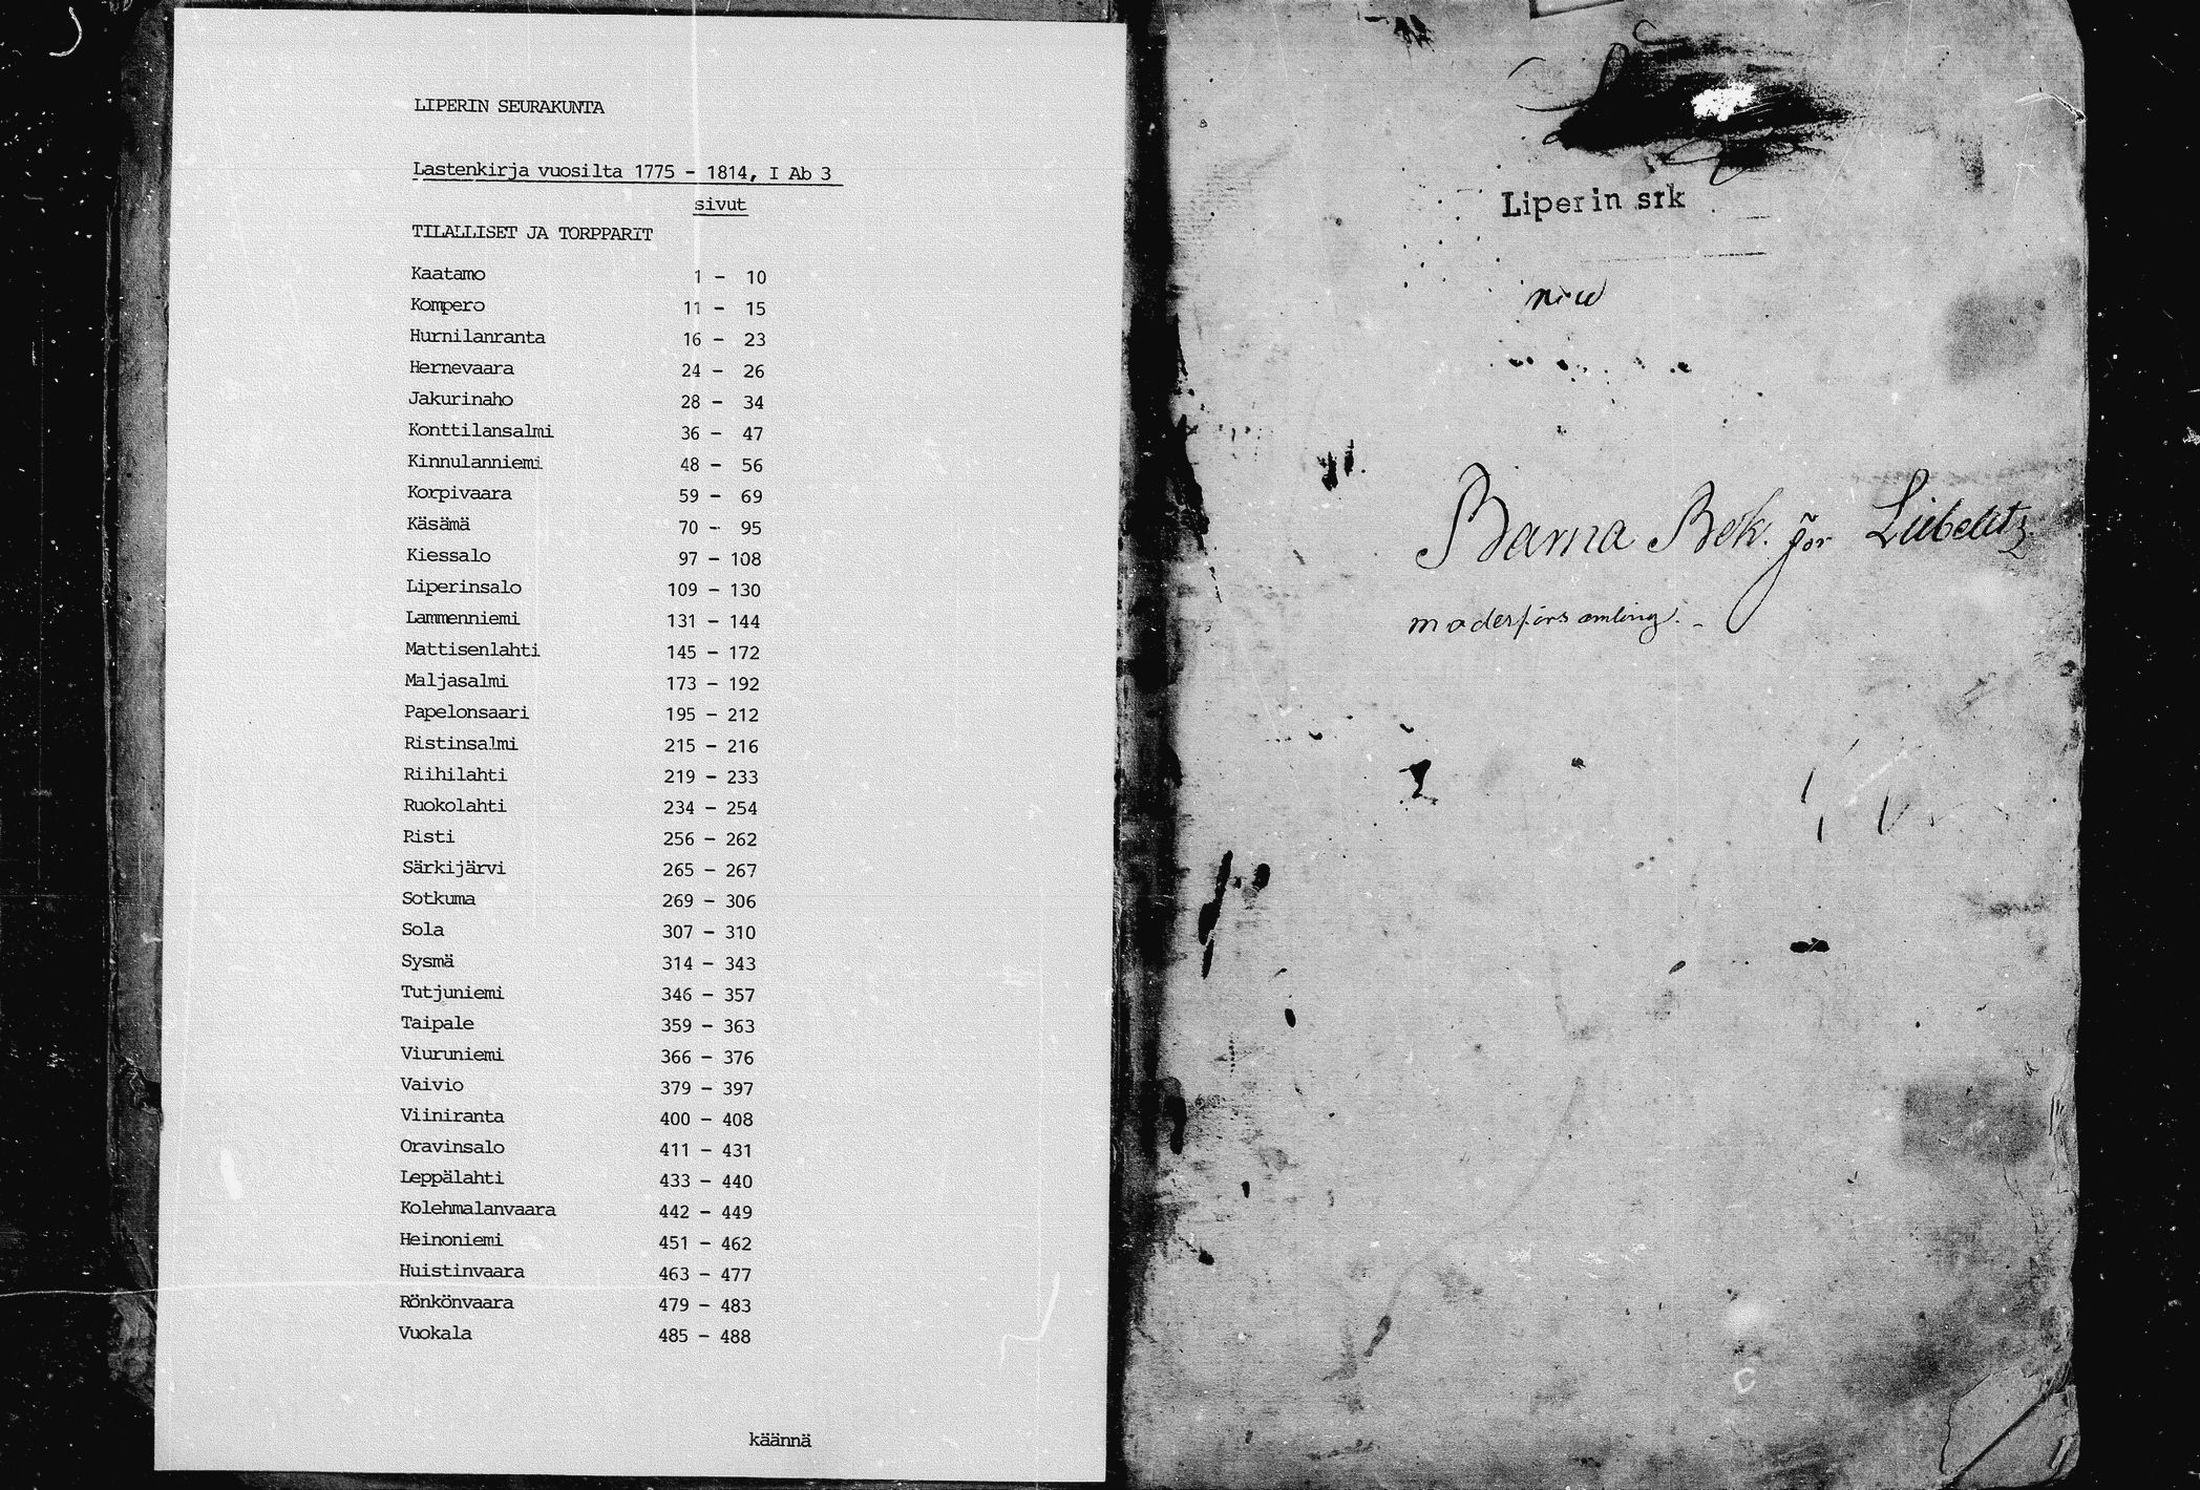 LIPERIN SEURAKUNTA
Lastenkirja vuosilta 1775 - 1814, I Ab 3
sivut
TILALLISET JA TORPPARIT
Kaatamo 1 - 10
Kompero 11 - 15
Hurnilanranta 16 - 23
Hernevaara 24 - 26
Jakurinaho 28 - 34
Konttilansalmi 36 - 47
Kinnulanniemi 48 - 56
Korpivaara 59 - 69
Käsämä 70 - 95
Kiessalo 97 - 108
Liperinsalo 109 - 130
Lammenniemi 131 - 144
Mattisenlahti 145 - 172
Maljasalmi 173 - 192
Papelonsaari 195 - 212
Ristinsalmi 215 - 216
Riihilahti 219 - 233
Ruokolahti 234 - 254
Risti 256 - 262
Särkijärvi 265 - 267
Sotkuma 269 - 306
Sola 307 - 310
Sysmä 314 - 343
Tutjuniemi 346 - 357
Taipale 359 - 363
Viuruniemi 366 - 376
Vaivio 379 - 397
Viiniranta 400 - 408
Oravinsalo 411 - 431
Leppälahti 433 - 440
Kolehmalanvaara 442 - 449
Heinoniemi 451 - 462
Huistinvaara 463 - 477
Rönkönvaara 479 - 483
Vuokala 485 - 488
käännä
Liperin srk
Barna Bok. för Libelitz
moderförsamling.